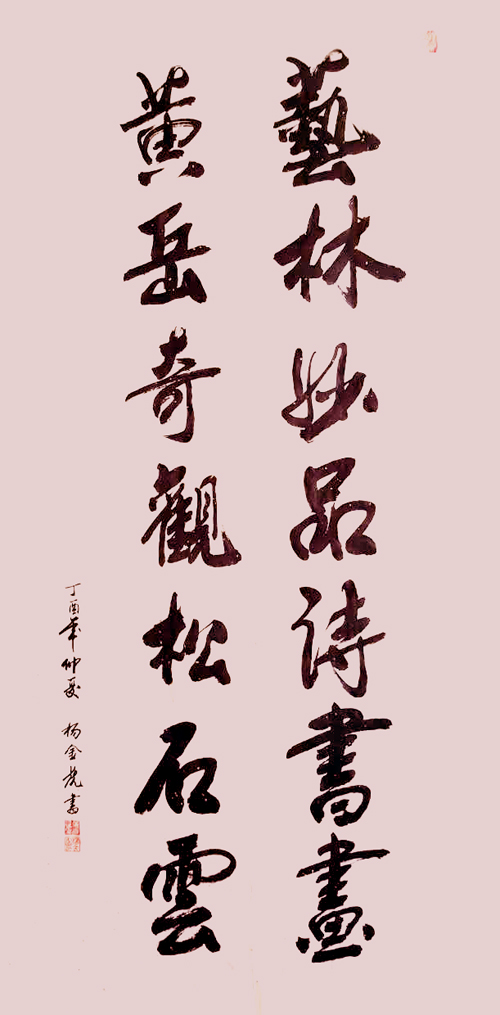 藝林妙品詩書畫
黃岳奇觀松石雲
丁酉年仲夏 楊金虎書